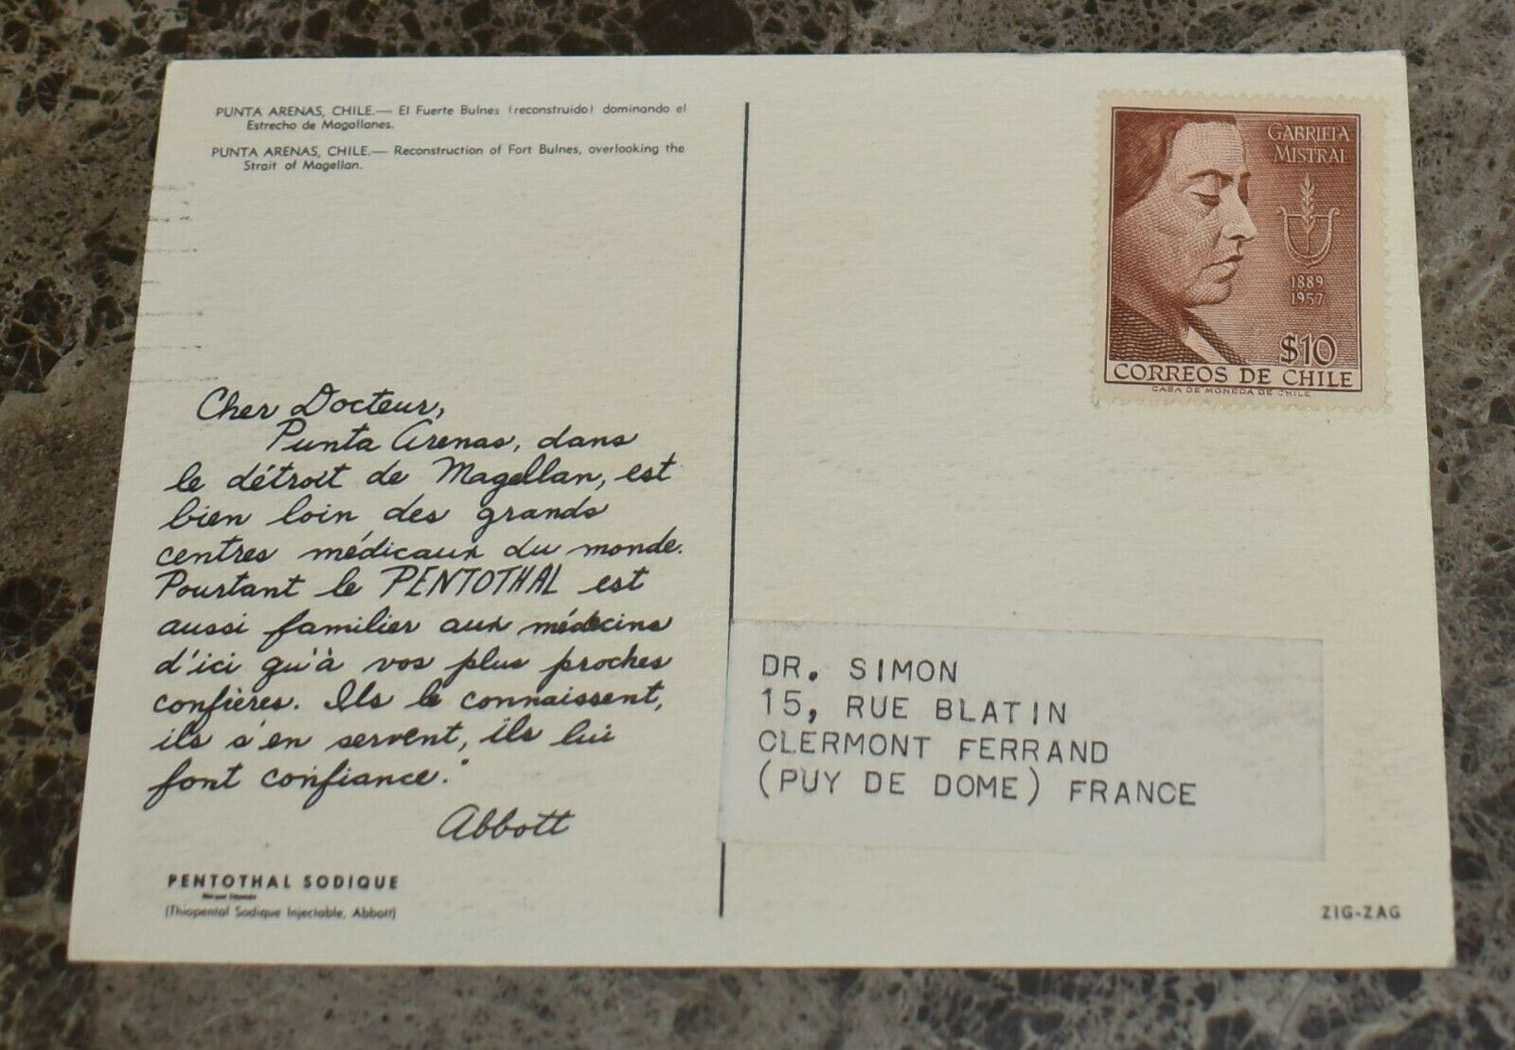 PUNTA ARENAS, CHILE.— El Fuerte Bulnes (reconstruido) dominando el
Estrecho de Magallanes.
PUNTA ARENAS, CHILE.— Reconstruction of Fort Bulnes, overlooking the
Strait of Magellan.
Cher Docteur,
Punta Arenas, dans
le détroit de Magellan, est
bien loin des grands
centres médicaux du monde.
Pourtant le PENTOTHAL est
aussi familier aux médecins
d'ici qu'à vos plus proches
confrères. Ils le connaissent,
ils s'en servent, ils lui
font confiance."
Abbott
PENTOTHAL SODIQUE
(Thiopental Sodique Injectable, Abbott)
GABRIELA
MISTRAL
1889
1957
$10
CORREOS DE CHILE
CASA DE MONEDA DE CHILE
DR. SIMON
15, RUE BLATIN
CLERMONT FERRAND
(PUY DE DOME) FRANCE
ZIG-ZAG